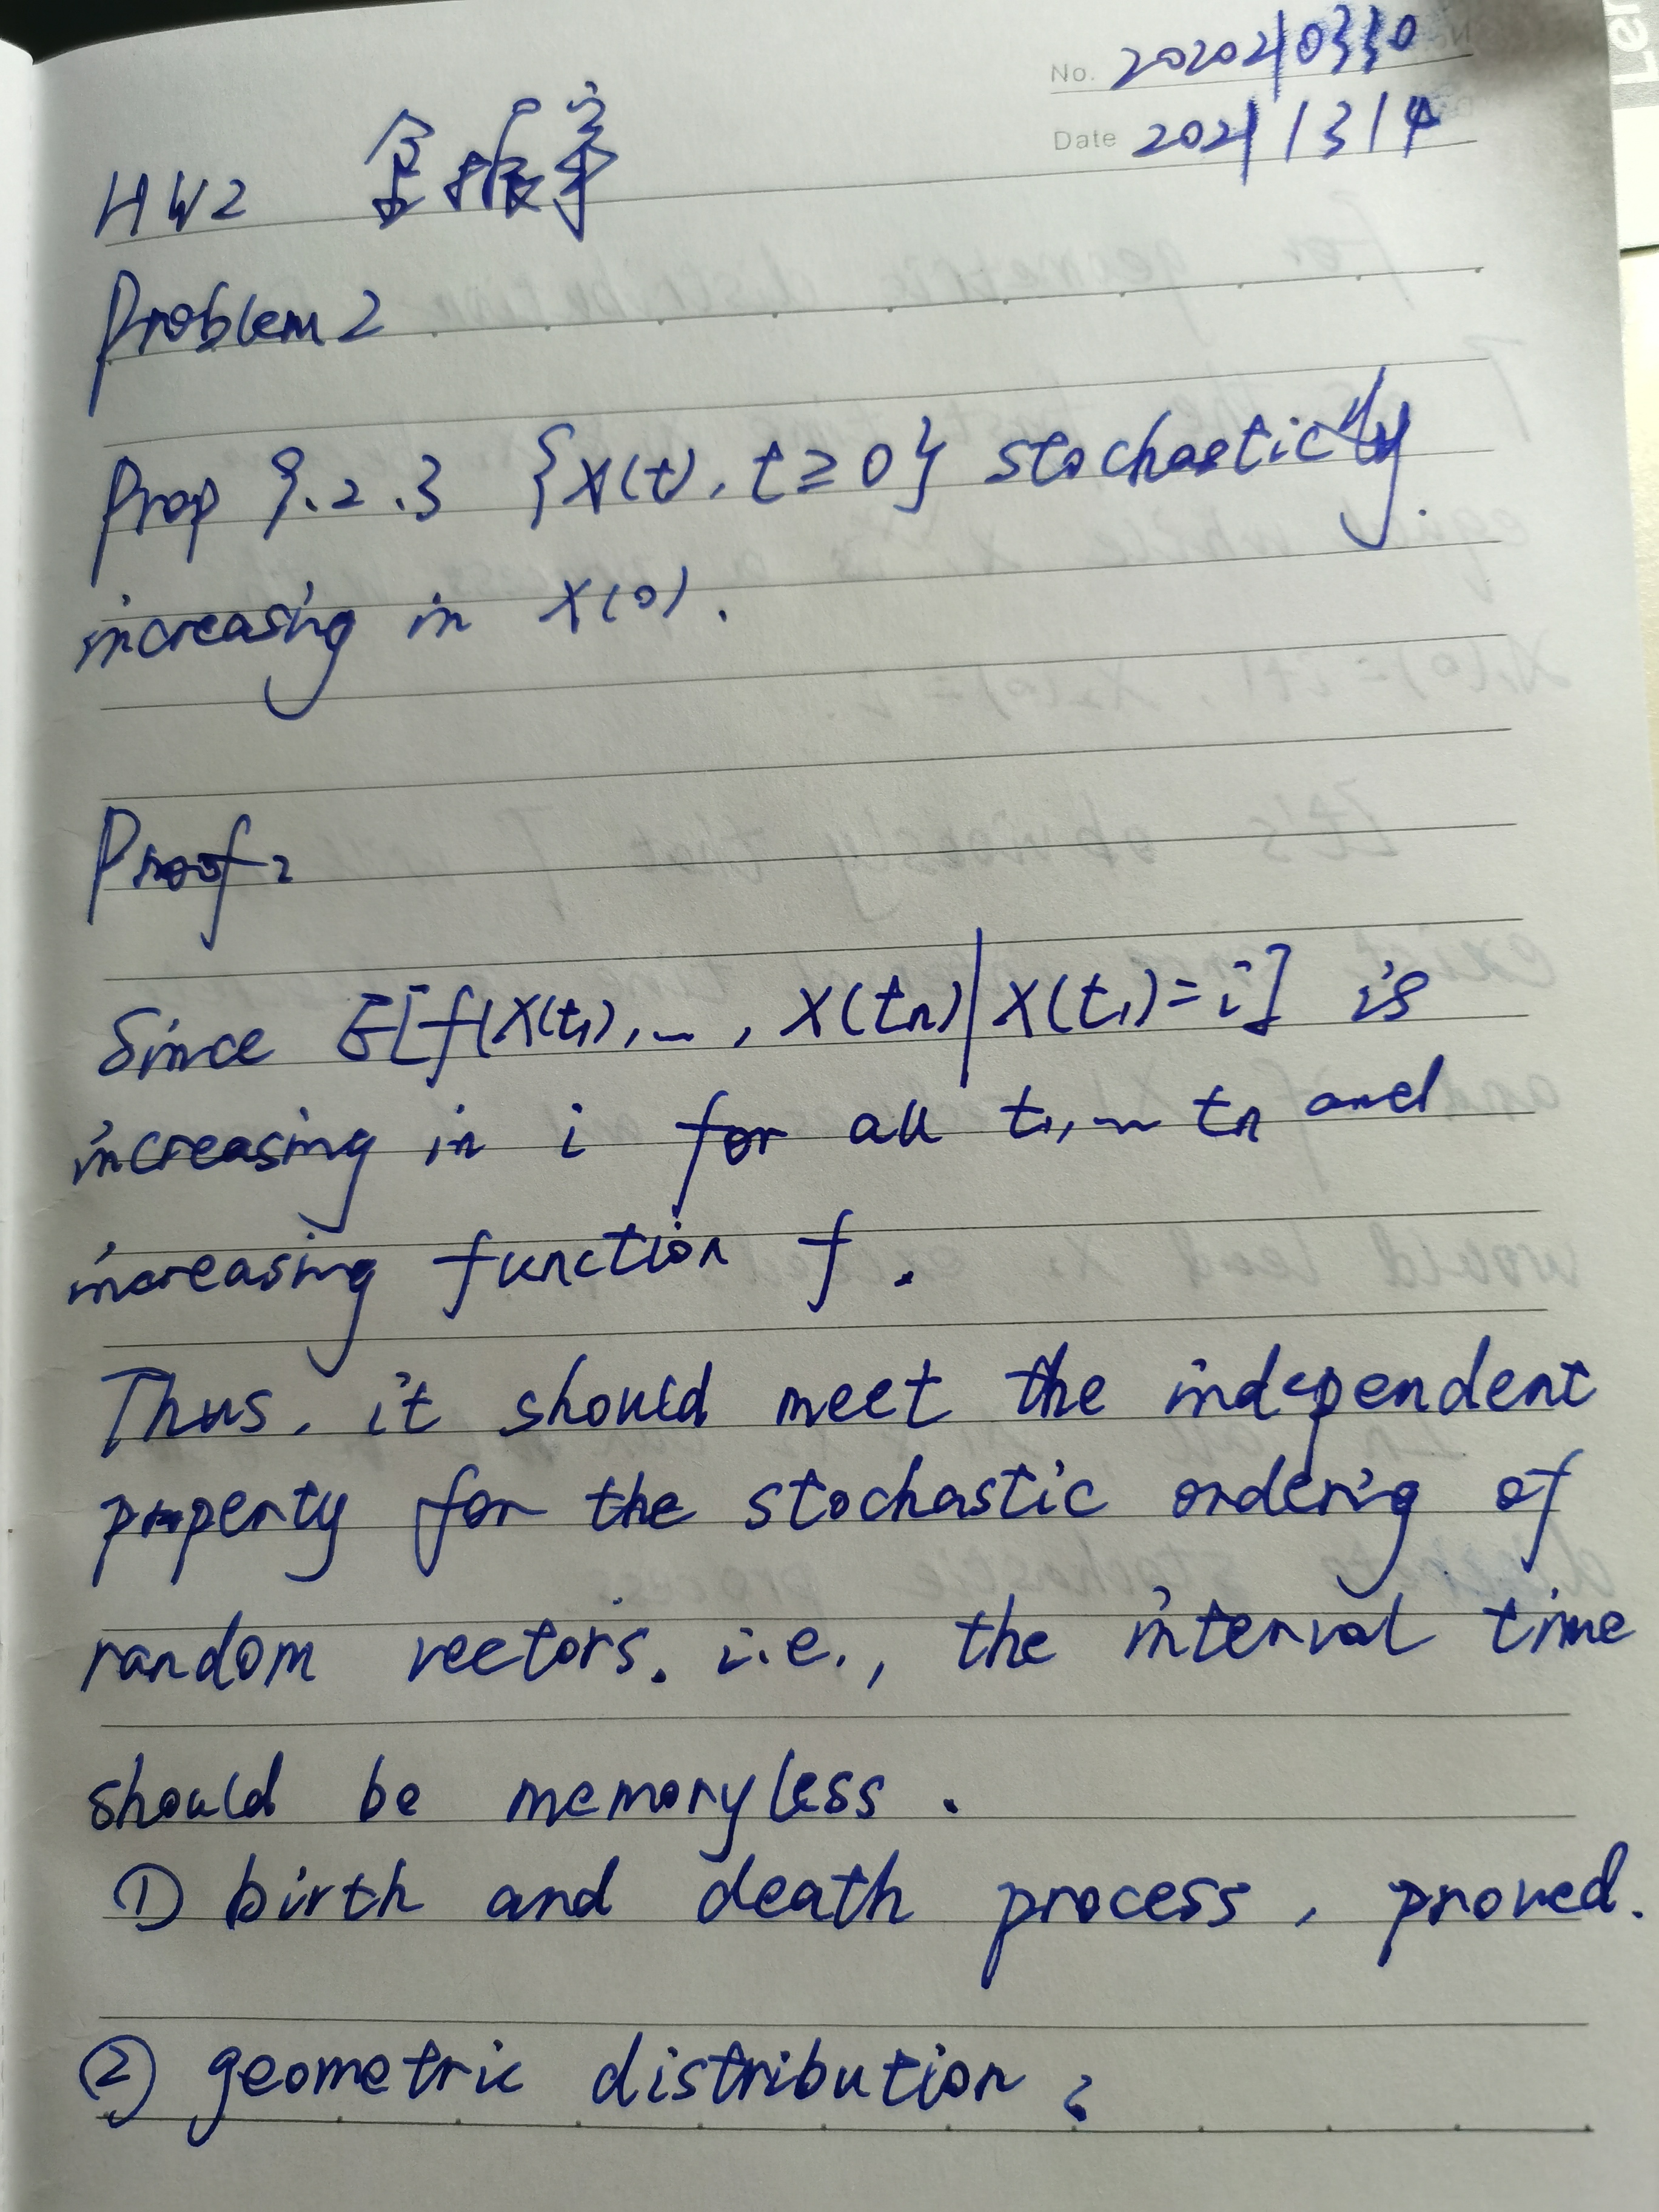 No. 2020210330
Date 2021/3/14
HW2 金振宇
Problem 2
Prop 9.2.3 {X(t), t≥0} stochastically
increasing in X(0).
Proof:
Since E[f(X(t₁),…, X(tₙ)|X(t₁)=i] is
increasing in i for all t₁,… tₙ and
increasing function f.
Thus, it should meet the independent
property for the stochastic ordering of
random vectors. i.e., the interval time
should be memoryless.
① birth and death process, proved.
② geometric distribution: